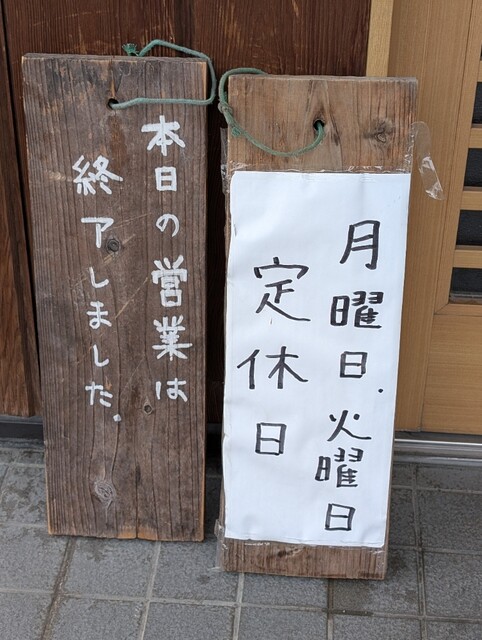 本日の営業は
終了しました。
月曜日、火曜日
定休日